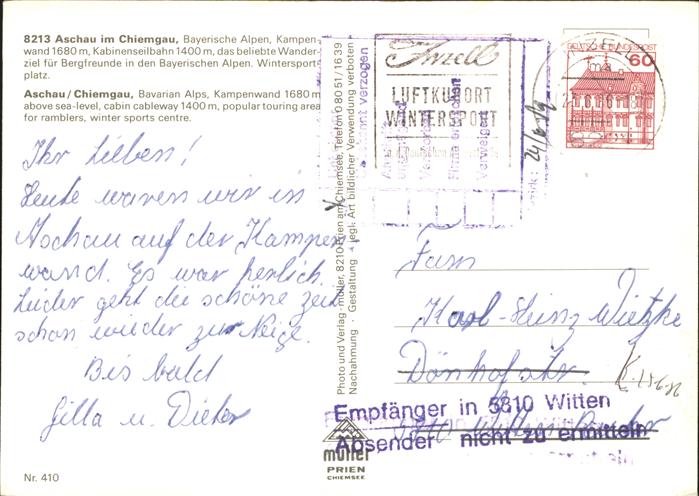 8213 Aschau im Chiemgau, Bayerische Alpen, Kampen-
wand 1680 m, Kabinenseilbahn 1400 m, das beliebte Wander-
ziel für Bergfreunde in den Bayerischen Alpen. Wintersport-
platz.
Aschau/Chiemgau, Bavarian Alps, Kampenwand 1680 m
above sea-level, cabin cableway 1400 m, popular touring area
for ramblers, winter sports centre.
Ihr Lieben!
Heute waren wir in
Aschau auf der Kampen
wand. Es war herlich.
Leider geht die schöne Zeit
schon wieder zur Neige.
Bis bald
Gilla u. Dieter
Nr. 410
Photo und Verlag · müller, 8210 Prien am Chiemsee, Telefon 0 80 51/16 39
Nachahmung · Gestaltung · jegl. Art bildlicher Verwendung verboten
müller
PRIEN
CHIEMSEE
Inzell
LUFTKURORT
WINTERSPORT
verzogen
Firma erloschen
24/6
DEUTSCHE BUNDESPOST
60
Fam
Karl-Heinz Wietzke
Dönhofstr.
5810 Witten
Empfänger in 5810 Witten
Absender nicht zu ermitteln